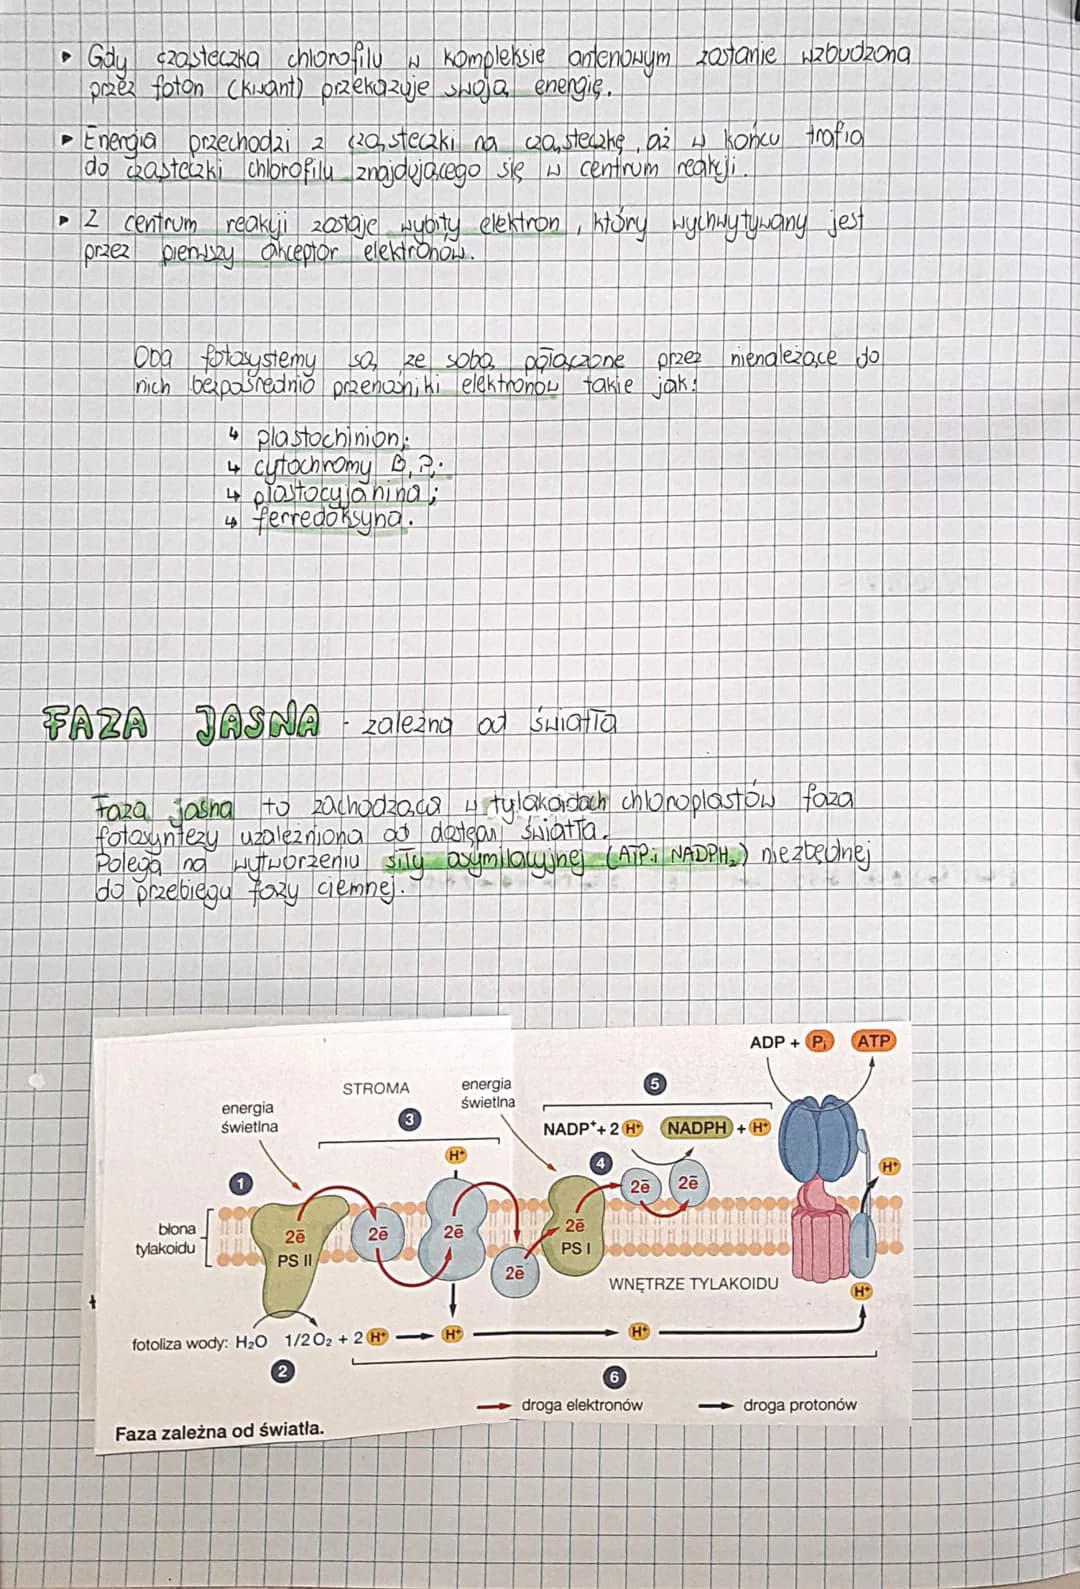 Gdy cząsteczka chlorofilu w kompleksie antenowym zostanie wzbudzona
przez foton (kwant) przekazuje swoją energię.
Energia przechodzi z cząsteczki na cząsteczkę, aż w końcu trafia
do cząsteczki chlorofilu znajdującego się w centrum reakcji.
Z centrum reakcji zostaje wybity elektron, który wychwytywany jest
przez pierwszy akceptor elektronów.
Oba fotosystemy są ze sobą połączone przez nienależące do
nich bezpośrednio przenośniki elektronów takie jak:
↳ plastochinion;
↳ cytochromy B,
↳ plastocyjanina;
↳ ferredoksyna.
FAZA JASNA - zależna od światła
Faza jasna to zachodząca w tylakoidach chloroplastów faza
fotosyntezy uzależniona od dostępu światła.
Polega na wytworzeniu siły asymilacyjnej (ATP i NADPH₂) niezbędnej
do przebiegu fazy ciemnej.
ADP + Pᵢ ATP
STROMA
energia
świetlna
5
energia
świetlna
3
NADP⁺ + 2 H⁺ NADPH + H⁺
H⁺
4
H⁺
1
2ē 2ē
błona
tylakoidu
2ē 2ē 2ē 2ē
PS II
PS I
2ē
WNĘTRZE TYLAKOIDU
H⁺
fotoliza wody: H₂O 1/2 O₂ + 2 H⁺ H⁺ H⁺
2
6
droga elektronów droga protonów
Faza zależna od światła.